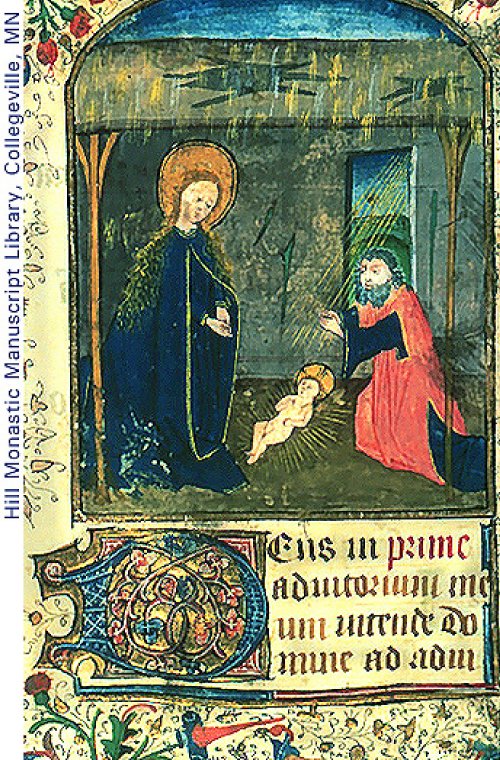 Hill Monastic Manuscript Library, Collegeville, MN
Deus in prime
adiutorium me
um intende Do
mine ad adiu